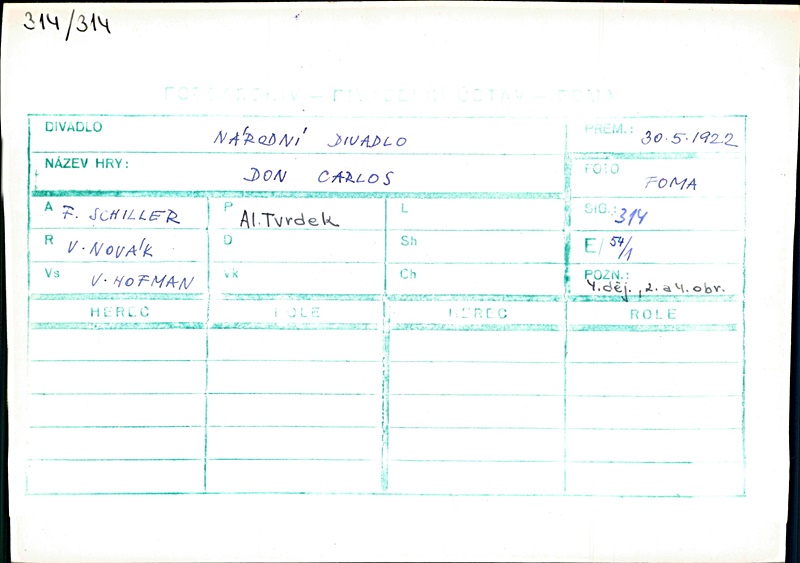 314/314
FOTOARCHIV – DIVADELNÍ ÚSTAV – FOMA
DIVADLO NÁRODNÍ DIVADLO PREM.: 30.5.1922
NÁZEV HRY: DON CARLOS FOTO FOMA
A F. SCHILLER P Al. Tvrdek L SIG.: 314
R V. NOVÁK D Sh E/ 54/1
Vs V. HOFMAN vk Ch POZN.: 4. děj., 2. a 4. obr.
HEREC ROLE HEREC ROLE